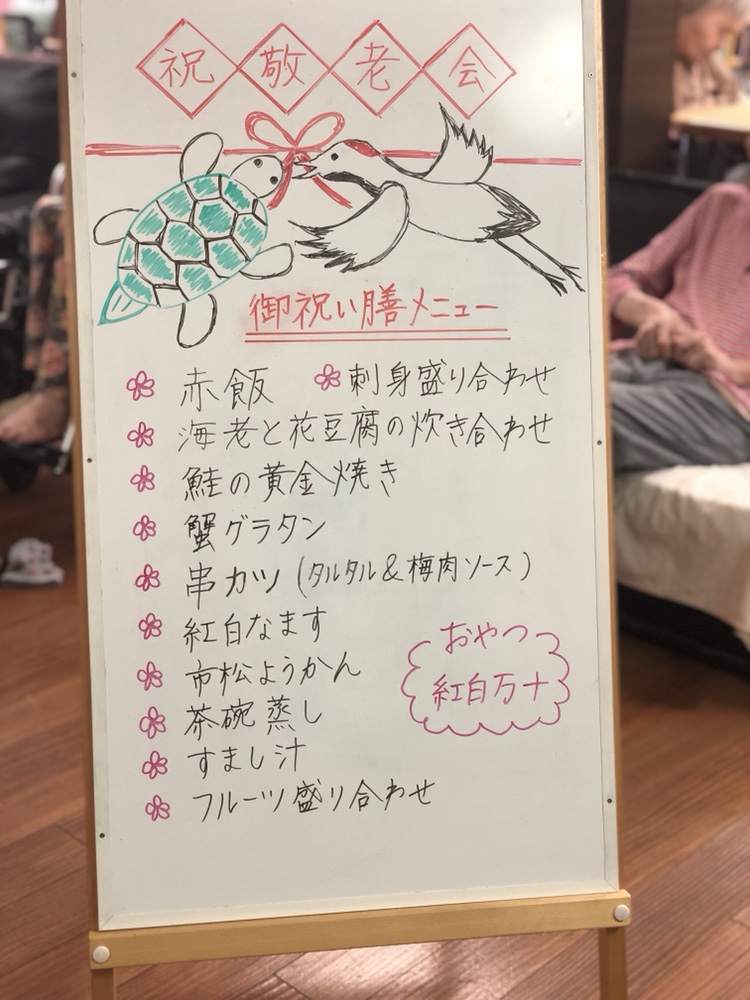 祝敬老会
御祝い膳メニュー
赤飯 刺身盛り合わせ
海老と花豆腐の炊き合わせ
鮭の黄金焼き
蟹グラタン
串カツ(タルタル&梅肉ソース)
紅白なます
市松ようかん
茶碗蒸し
すまし汁
フルーツ盛り合わせ
おやつ
紅白万十